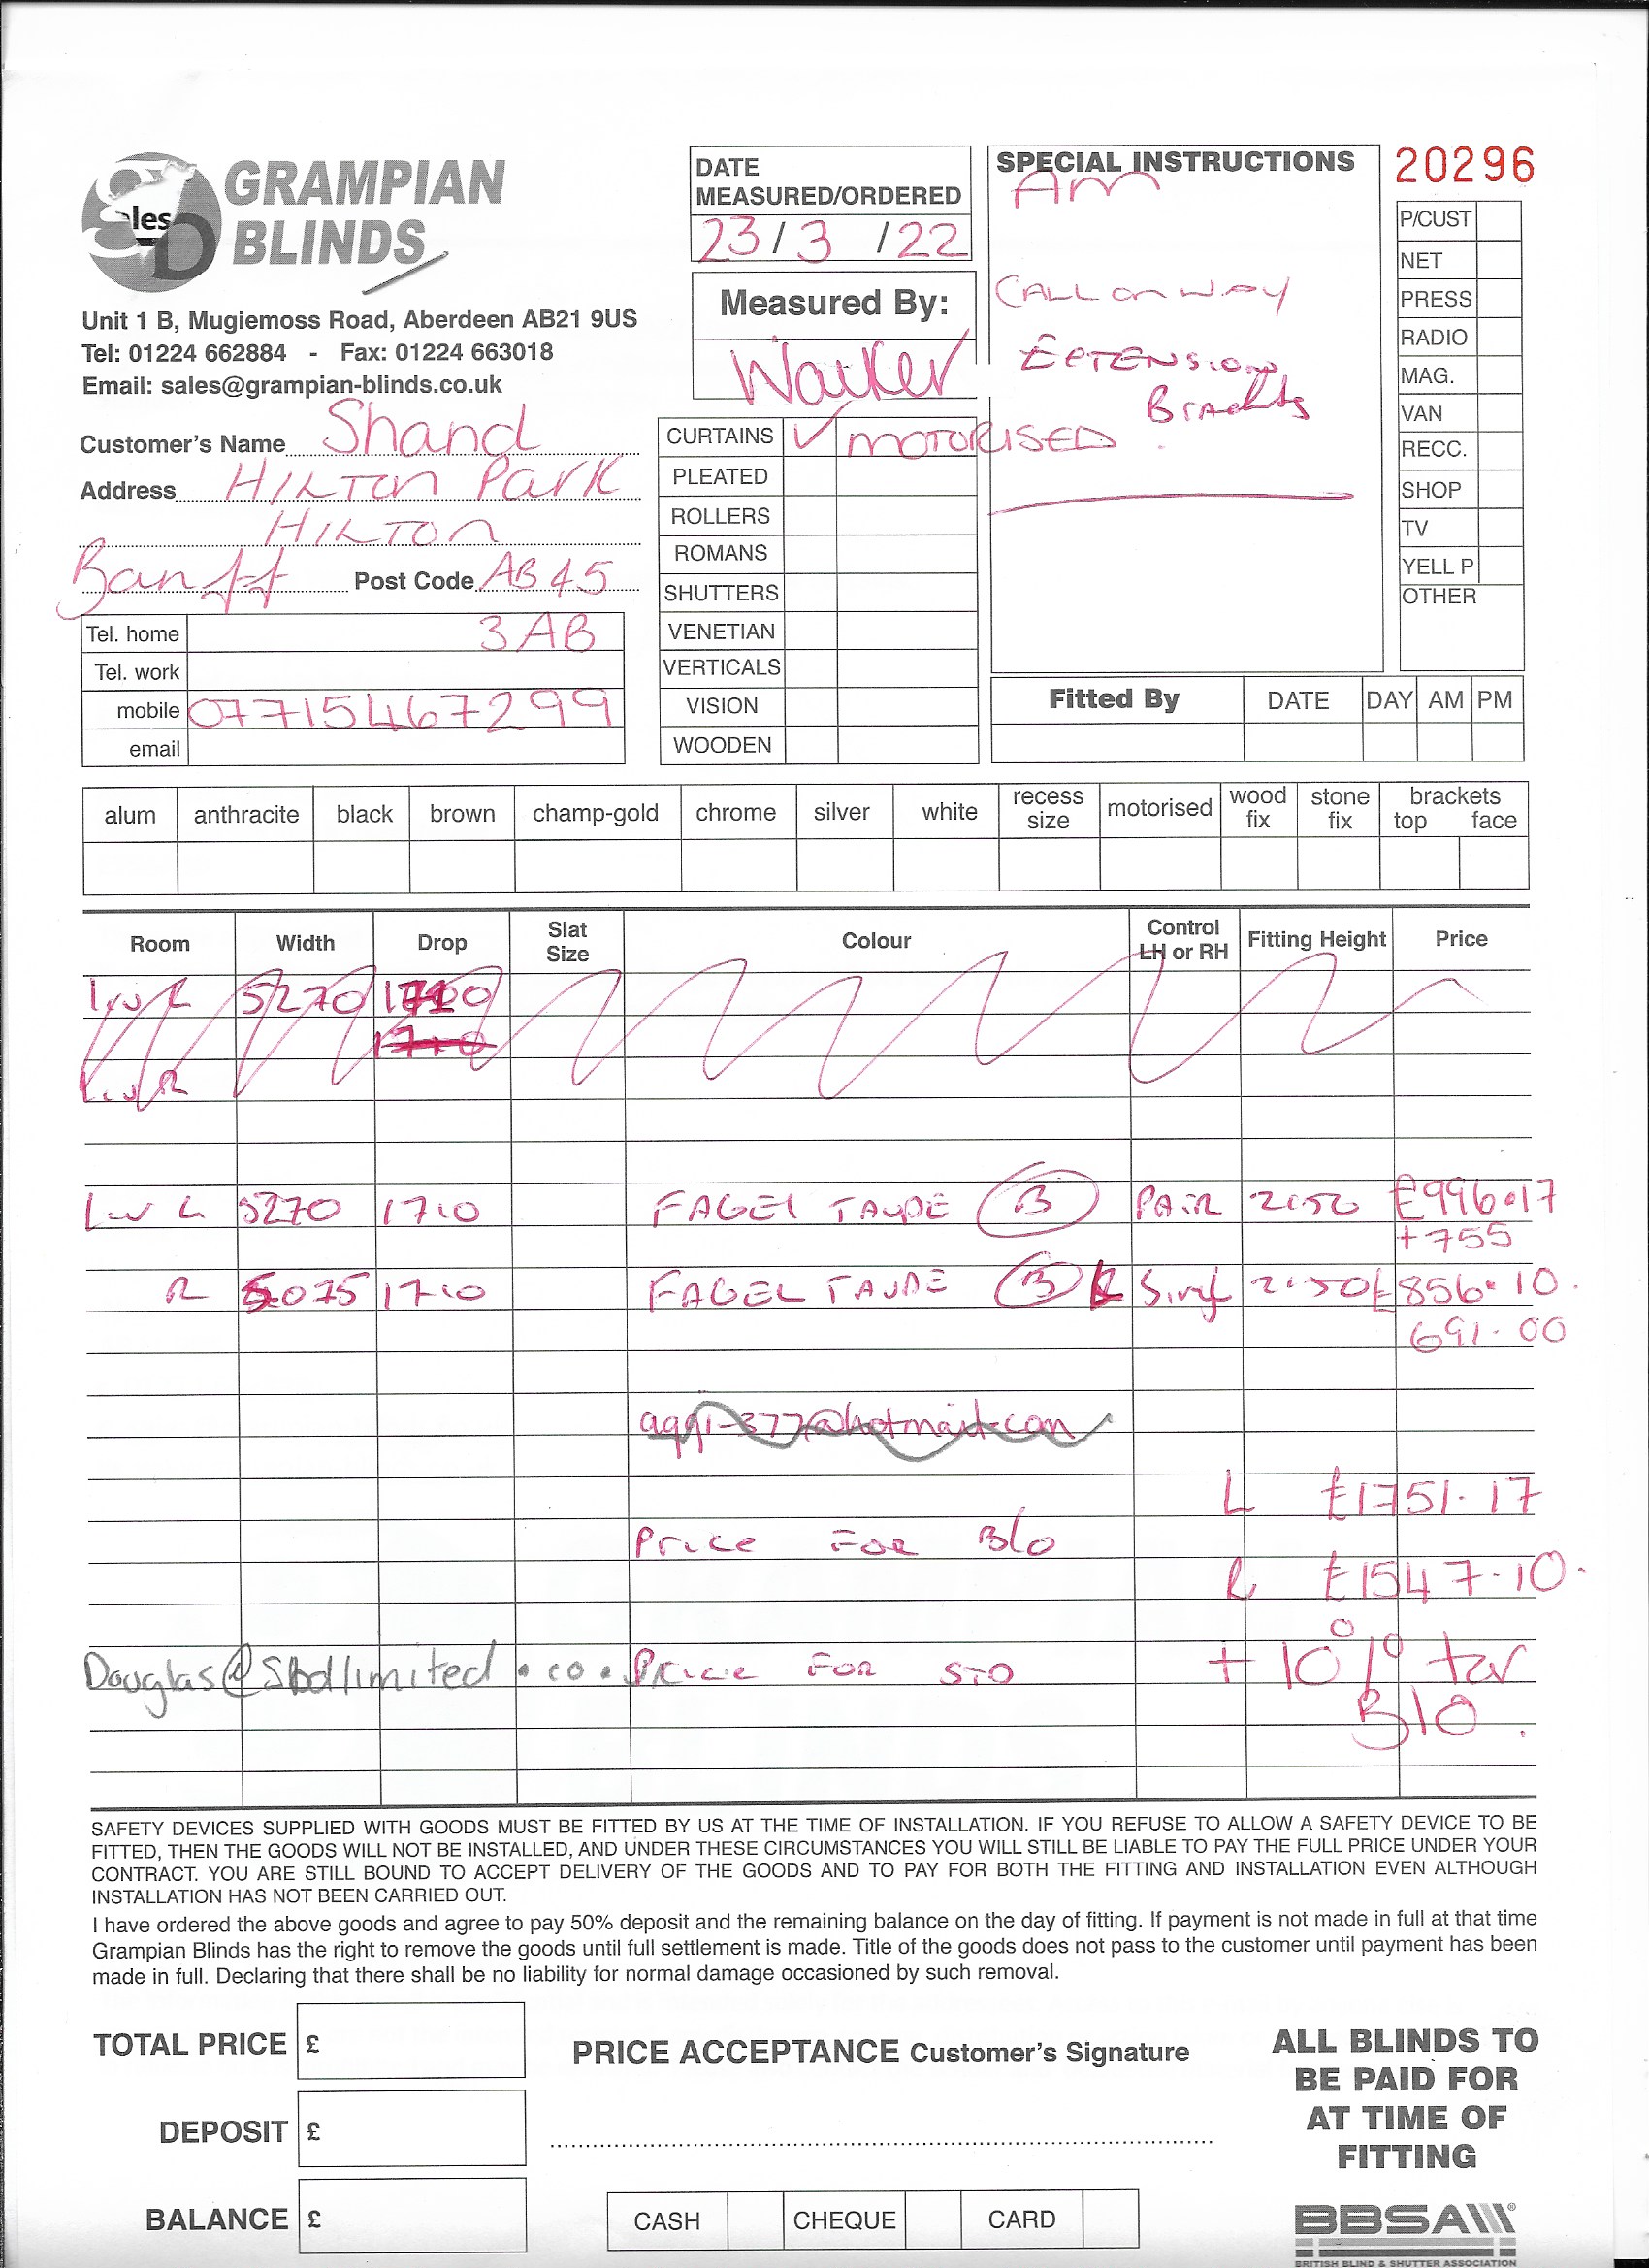 GRAMPIAN
BLINDS
Unit 1 B, Mugiemoss Road, Aberdeen AB21 9US
Tel: 01224 662884 - Fax: 01224 663018
Email: sales@grampian-blinds.co.uk
Customer's Name Shand
Address HILTON PARK
HILTON
Banff Post Code AB45
Tel. home 3AB
Tel. work
mobile 07715467299
email
DATE
MEASURED/ORDERED
23/3/22
Measured By:
Walker
CURTAINS ✓ MOTORISED
PLEATED
ROLLERS
ROMANS
SHUTTERS
VENETIAN
VERTICALS
VISION
WOODEN
SPECIAL INSTRUCTIONS
AM
CALL on WAY
EXTENSION
Brackets
20296
P/CUST
NET
PRESS
RADIO
MAG.
VAN
RECC.
SHOP
TV
YELL P
OTHER
Fitted By DATE DAY AM PM
alum anthracite black brown champ-gold chrome silver white recess size motorised wood fix stone fix brackets top face
Room Width Drop Slat Size Colour Control LH or RH Fitting Height Price
5270
L 5270 1710 FAGEL TAUPE B PAIR 2150 £996.17
+755
R 5075 1710 FAGEL TAUPE B Singl 2150 £856.10
691.00
L £1751.17
Price FOR B/O
R £1547.10
Douglas@Sbdlimited.co. Price FOR STD + 10% for
B/O
SAFETY DEVICES SUPPLIED WITH GOODS MUST BE FITTED BY US AT THE TIME OF INSTALLATION. IF YOU REFUSE TO ALLOW A SAFETY DEVICE TO BE
FITTED, THEN THE GOODS WILL NOT BE INSTALLED, AND UNDER THESE CIRCUMSTANCES YOU WILL STILL BE LIABLE TO PAY THE FULL PRICE UNDER YOUR
CONTRACT. YOU ARE STILL BOUND TO ACCEPT DELIVERY OF THE GOODS AND TO PAY FOR BOTH THE FITTING AND INSTALLATION EVEN ALTHOUGH
INSTALLATION HAS NOT BEEN CARRIED OUT.
I have ordered the above goods and agree to pay 50% deposit and the remaining balance on the day of fitting. If payment is not made in full at that time
Grampian Blinds has the right to remove the goods until full settlement is made. Title of the goods does not pass to the customer until payment has been
made in full. Declaring that there shall be no liability for normal damage occasioned by such removal.
TOTAL PRICE £
DEPOSIT £
BALANCE £
PRICE ACCEPTANCE Customer's Signature
CASH CHEQUE CARD
ALL BLINDS TO
BE PAID FOR
AT TIME OF
FITTING
BBSA
BRITISH BLIND & SHUTTER ASSOCIATION